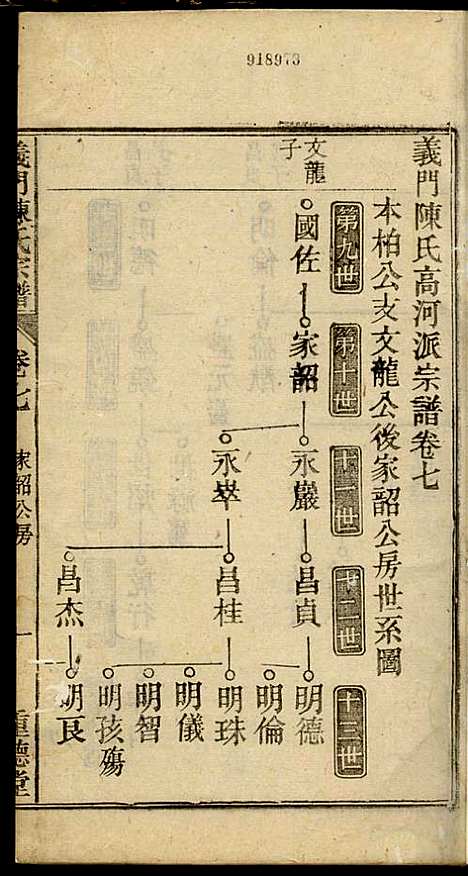 918973
義門陳氏高河派宗譜卷七
本柏公支文龍公後家韶公房世系圖
第九世
第十世
十一世
十二世
十三世
文龍子
國佐
家韶
永巖
昌貞
明德
明倫
永萃
昌桂
明珠
明儀
明智
明孩殤
昌杰
明良
義門陳氏宗譜
卷七
家韶公房
一
重德堂